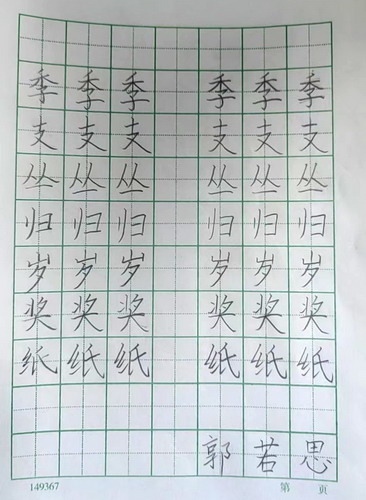 季季季 季季季
支支支 支支支
丛丛丛 丛丛丛
归归归 归归归
岁岁岁 岁岁岁
奖奖奖 奖奖奖
纸纸纸 纸纸纸
郭若思
149367 第 页